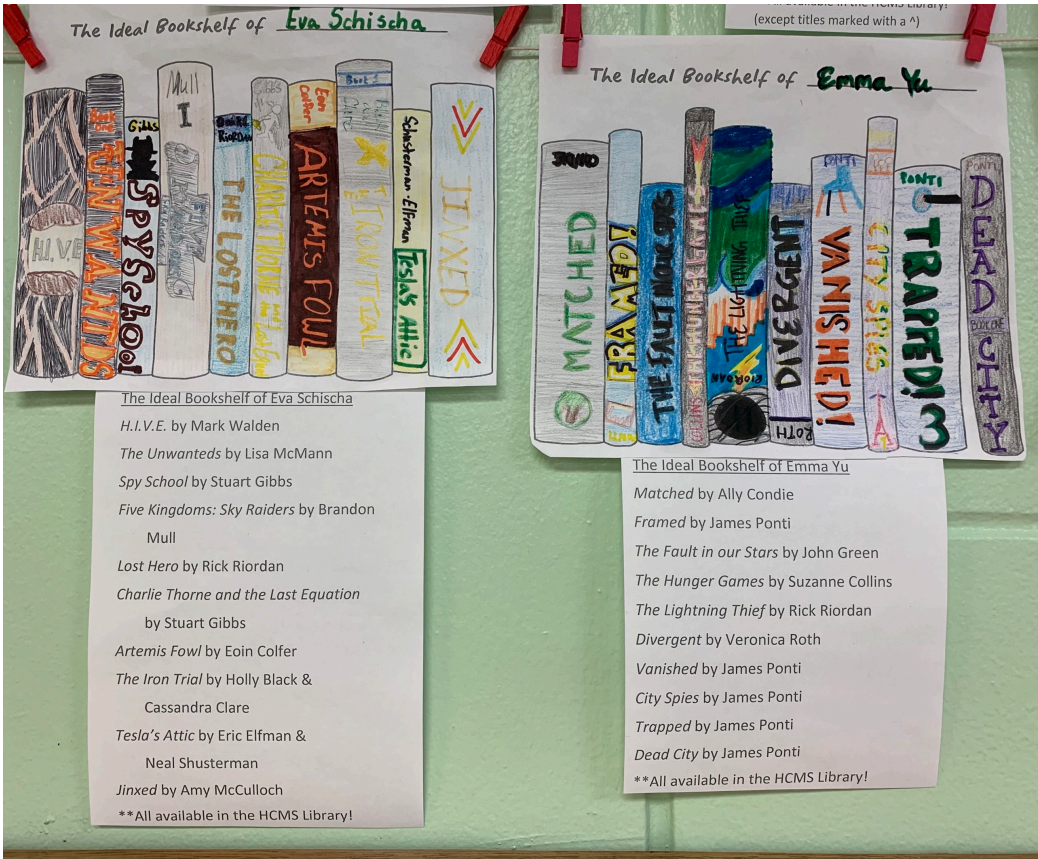 all available in the HCMS Library!
(except titles marked with a ^)
The Ideal Bookshelf of Eva Schischa
H.I.V.E
BOOK ONE
THE UNWANTEDS
Gibbs
SPY SCHOOL
Mull
I
RIORDAN
THE LOST HERO
GIBBS
CHARLIE THORNE and the Last
Eoin Colfer
ARTEMIS FOWL
Book 1
IRON TRIAL
Schusterman-Elfman
Tesla's Attic
JINXED
The Ideal Bookshelf of Eva Schischa
H.I.V.E. by Mark Walden
The Unwanteds by Lisa McMann
Spy School by Stuart Gibbs
Five Kingdoms: Sky Raiders by Brandon
Mull
Lost Hero by Rick Riordan
Charlie Thorne and the Last Equation
by Stuart Gibbs
Artemis Fowl by Eoin Colfer
The Iron Trial by Holly Black &
Cassandra Clare
Tesla's Attic by Eric Elfman &
Neal Shusterman
Jinxed by Amy McCulloch
**All available in the HCMS Library!
The Ideal Bookshelf of Emma Yu
MATCHED
FRAMED!
THE FAULT IN OUR STARS
COLLINS THE HUNGER GAMES
THE LIGHTNING THIEF
RIORDAN
DIVERGENT
ROTH
PONTI
VANISHED!
CITY SPIES
PONTI
TRAPPED! 3
PONTI
DEAD CITY
BOOK ONE
The Ideal Bookshelf of Emma Yu
Matched by Ally Condie
Framed by James Ponti
The Fault in our Stars by John Green
The Hunger Games by Suzanne Collins
The Lightning Thief by Rick Riordan
Divergent by Veronica Roth
Vanished by James Ponti
City Spies by James Ponti
Trapped by James Ponti
Dead City by James Ponti
**All available in the HCMS Library!